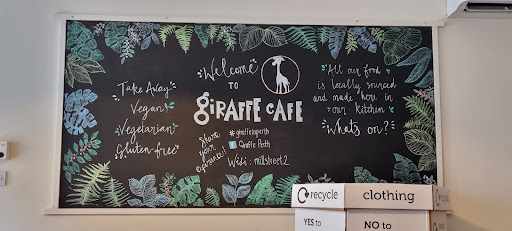 Take Away
Vegan
Vegetarian
Gluten-free
Welcome
TO
GIRAFFE CAFE
Share
your
experience!
#giraffeinperth
Giraffe Perth
All our food
is locally sourced
and made here in
our kitchen
What's on?
recycle
clothing
YES to
NO to